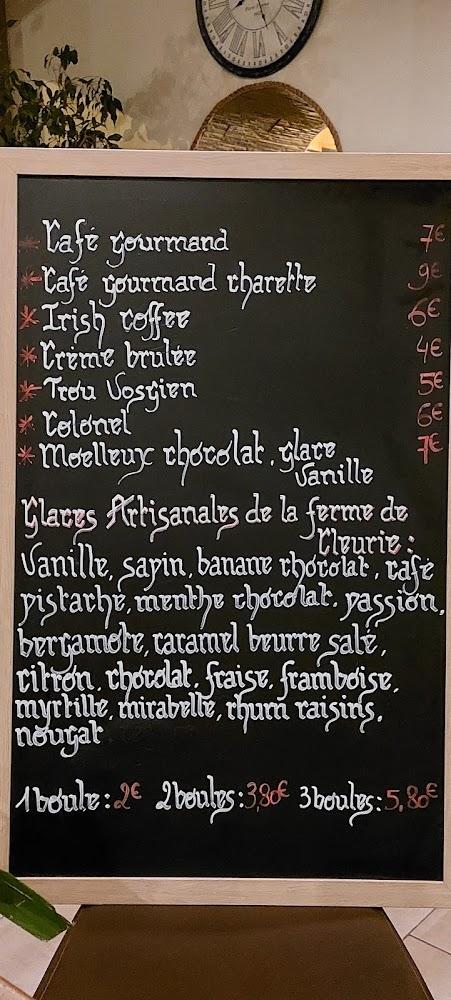 * Café gourmand 7€
* Café gourmand charette 9€
* Irish coffee 6€
* Crème brulée 4€
* Trou Vosgien 5€
* Colonel 6€
* Moelleux chocolat, glace 7€
Vanille
Glaces Artisanales de la ferme de
Cleurie :
Vanille, sapin, banane chocolat, café
pistache, menthe chocolat, passion,
bergamote, caramel beurre salé,
citron, chocolat, fraise, framboise,
myrtille, mirabelle, rhum raisins,
nougat
1 boule : 2€ 2 boules : 3,80€ 3 boules : 5,80€